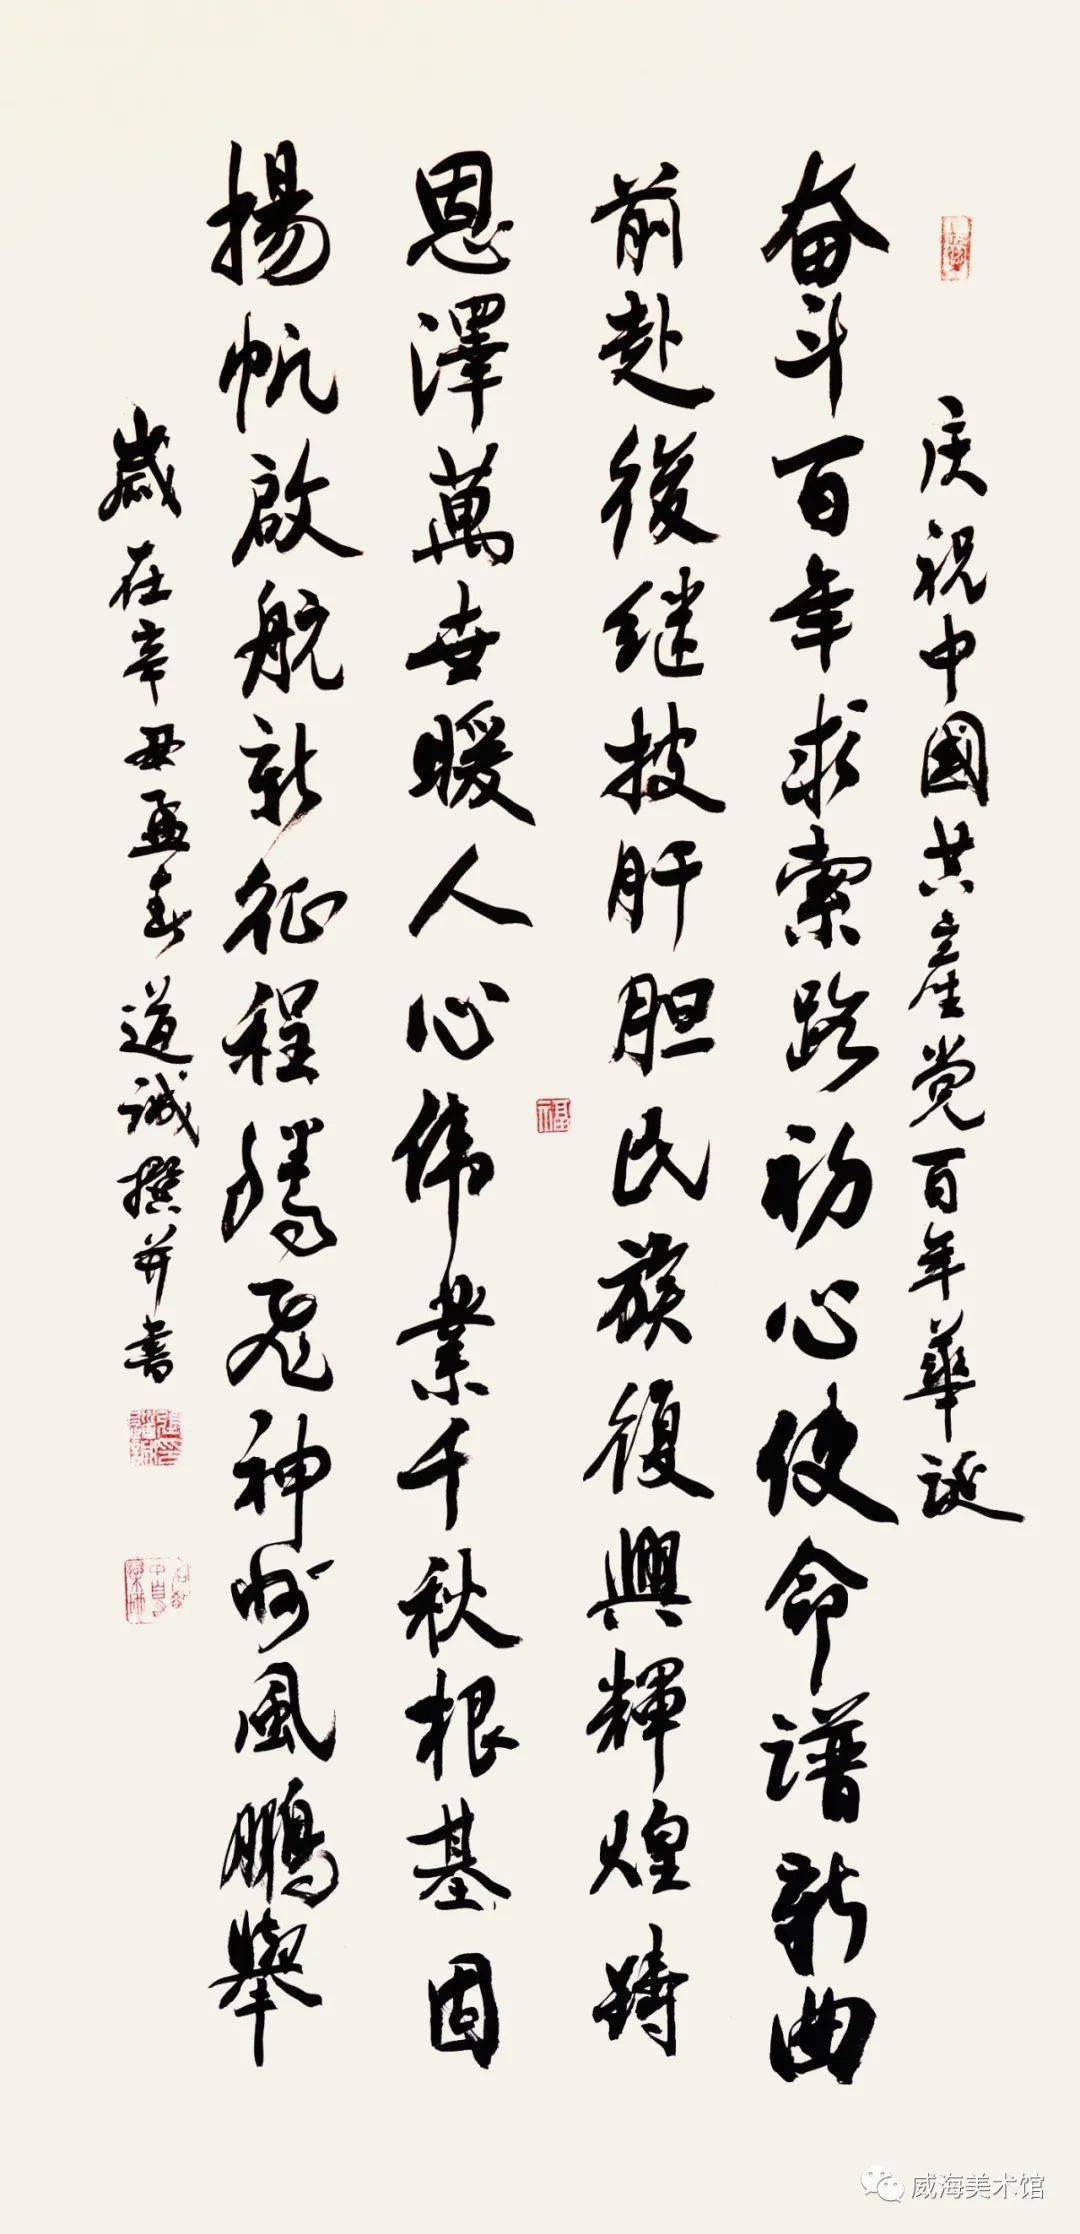 庆祝中國共產党百年華诞
奋斗百年求索路初心使命谱新曲
前赴後继披肝胆民族復興輝煌鑄
恩澤萬世暖人心伟業千秋根基固
揚帆啟航新征程騰飛神州風鵬舉
歲在辛丑孟春道诚撰并书
福
威海美术馆